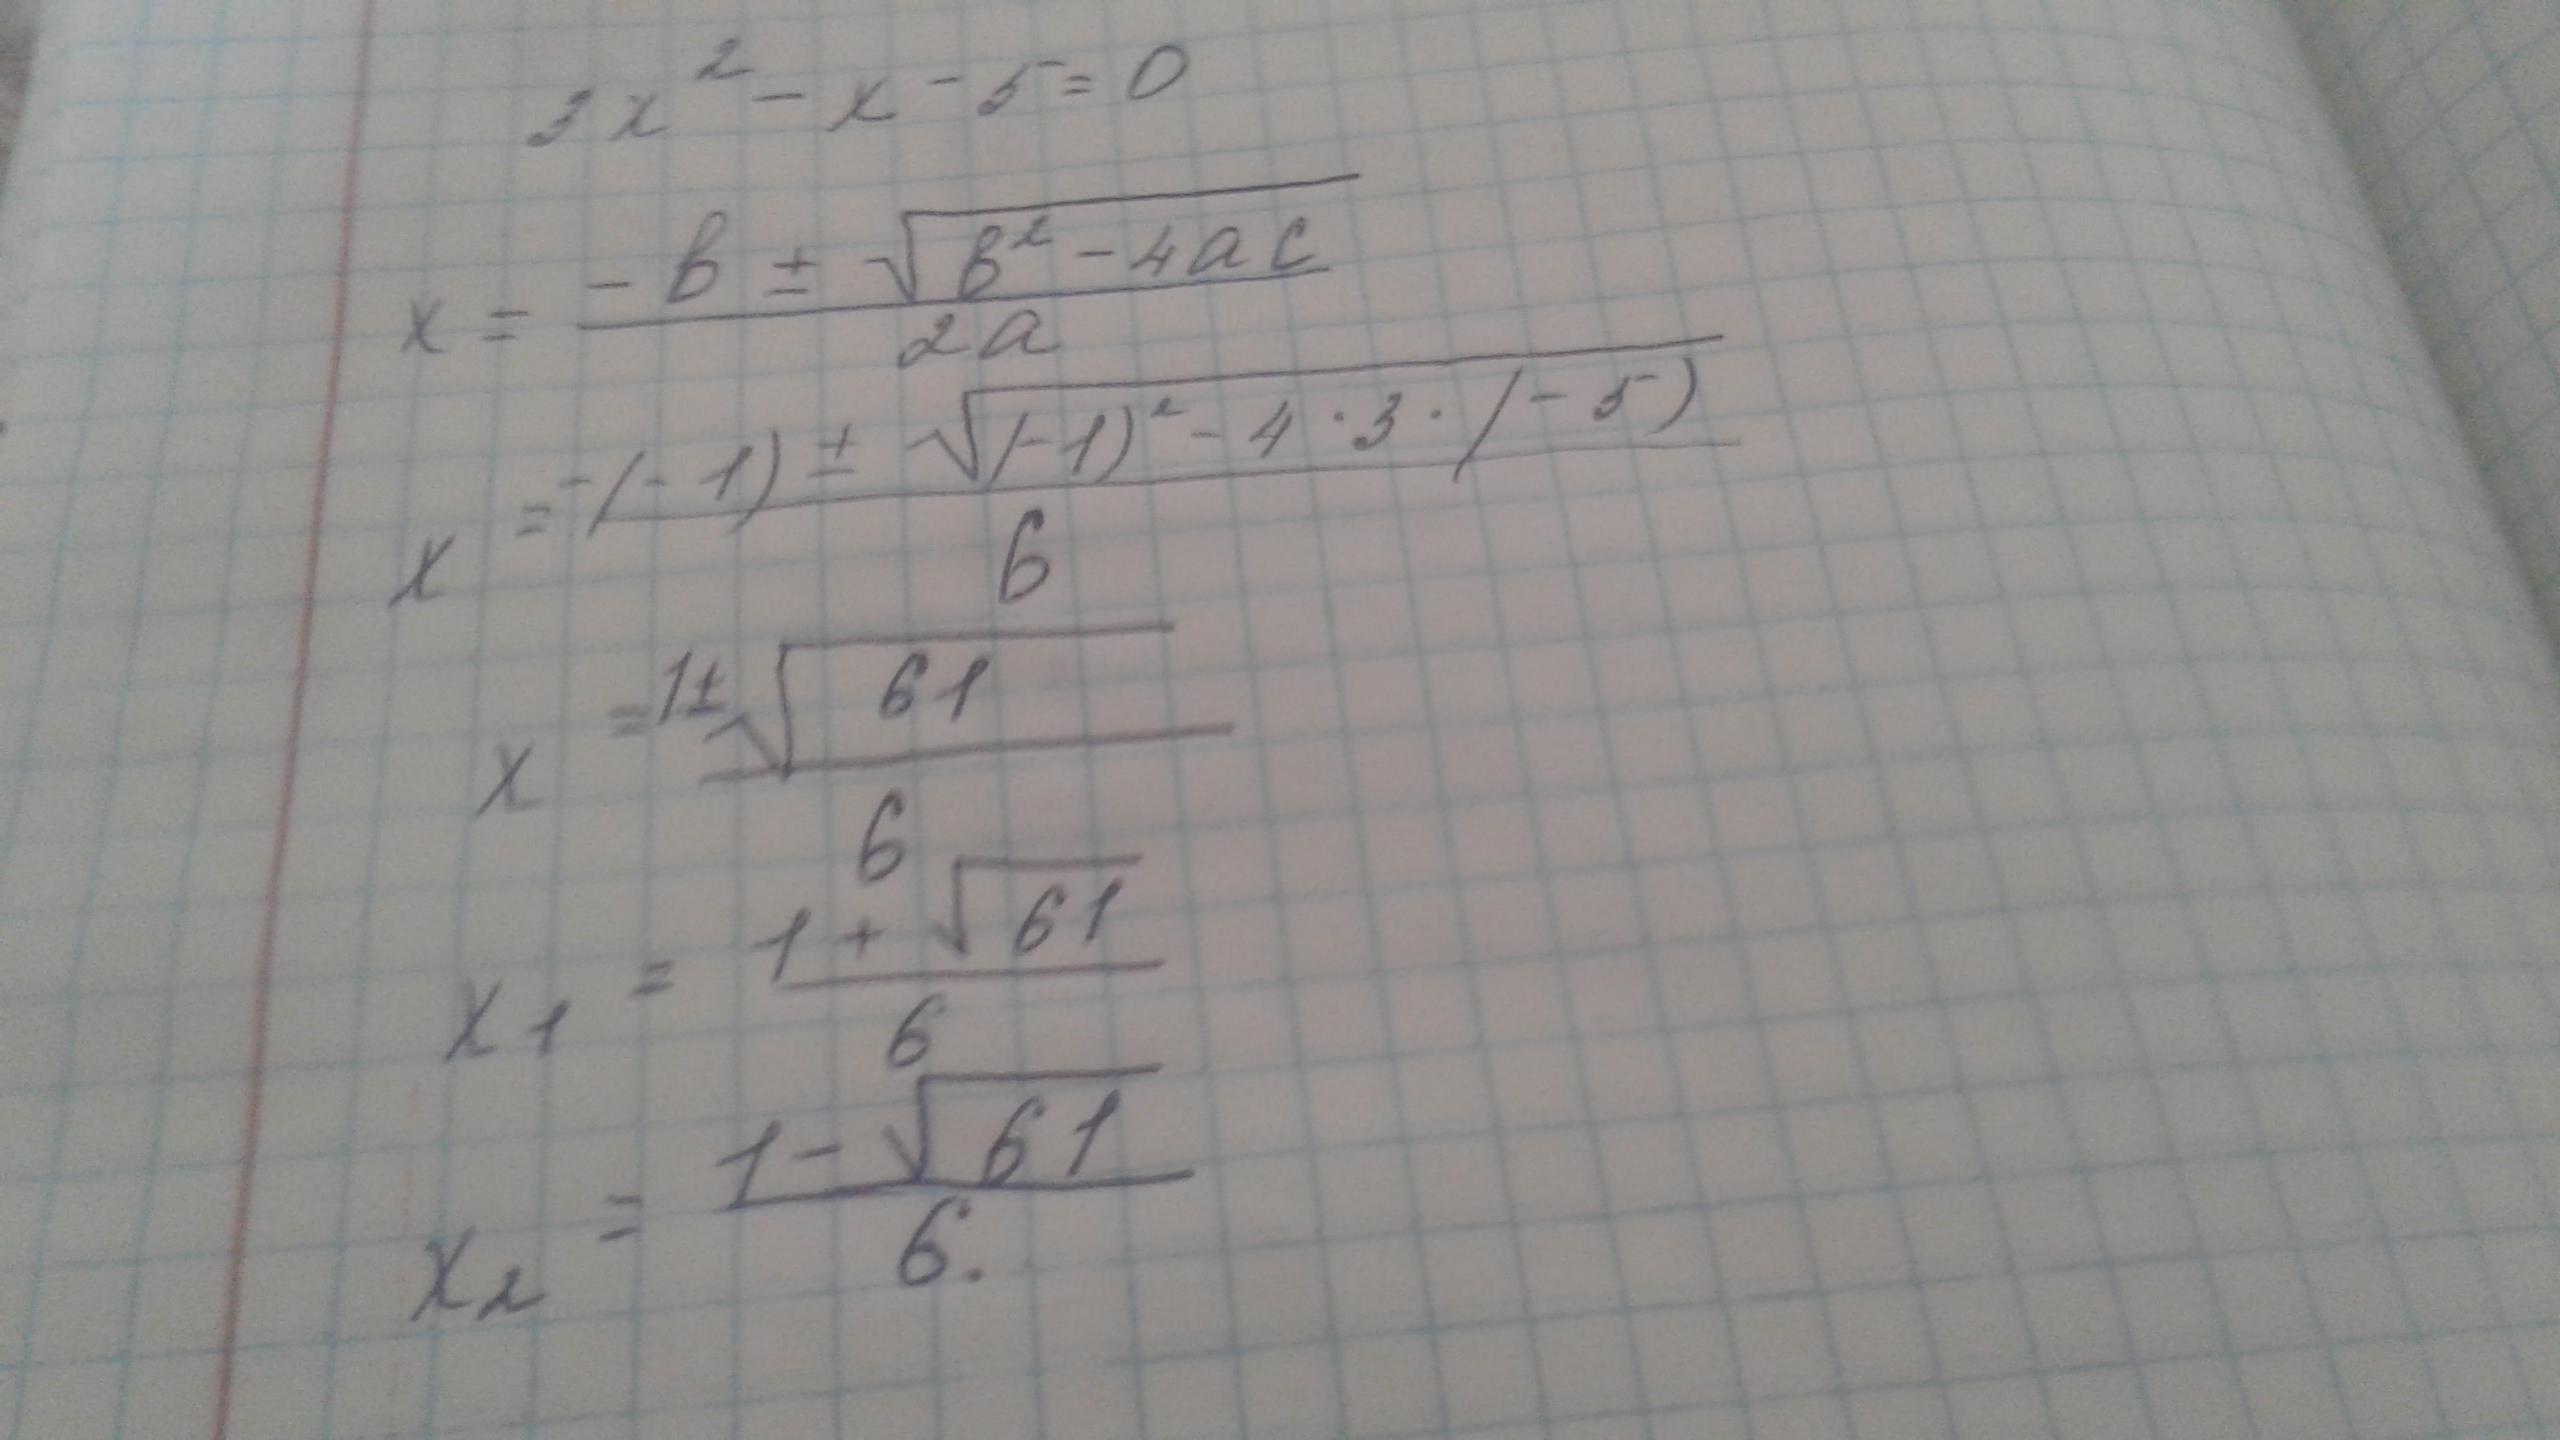 3x² - x - 5 = 0
x = (-b ± √(b² - 4ac)) / 2a
x = (-(-1) ± √((-1)² - 4 · 3 · (-5))) / 6
x = (1 ± √61) / 6
x₁ = (1 + √61) / 6
x₂ = (1 - √61) / 6.